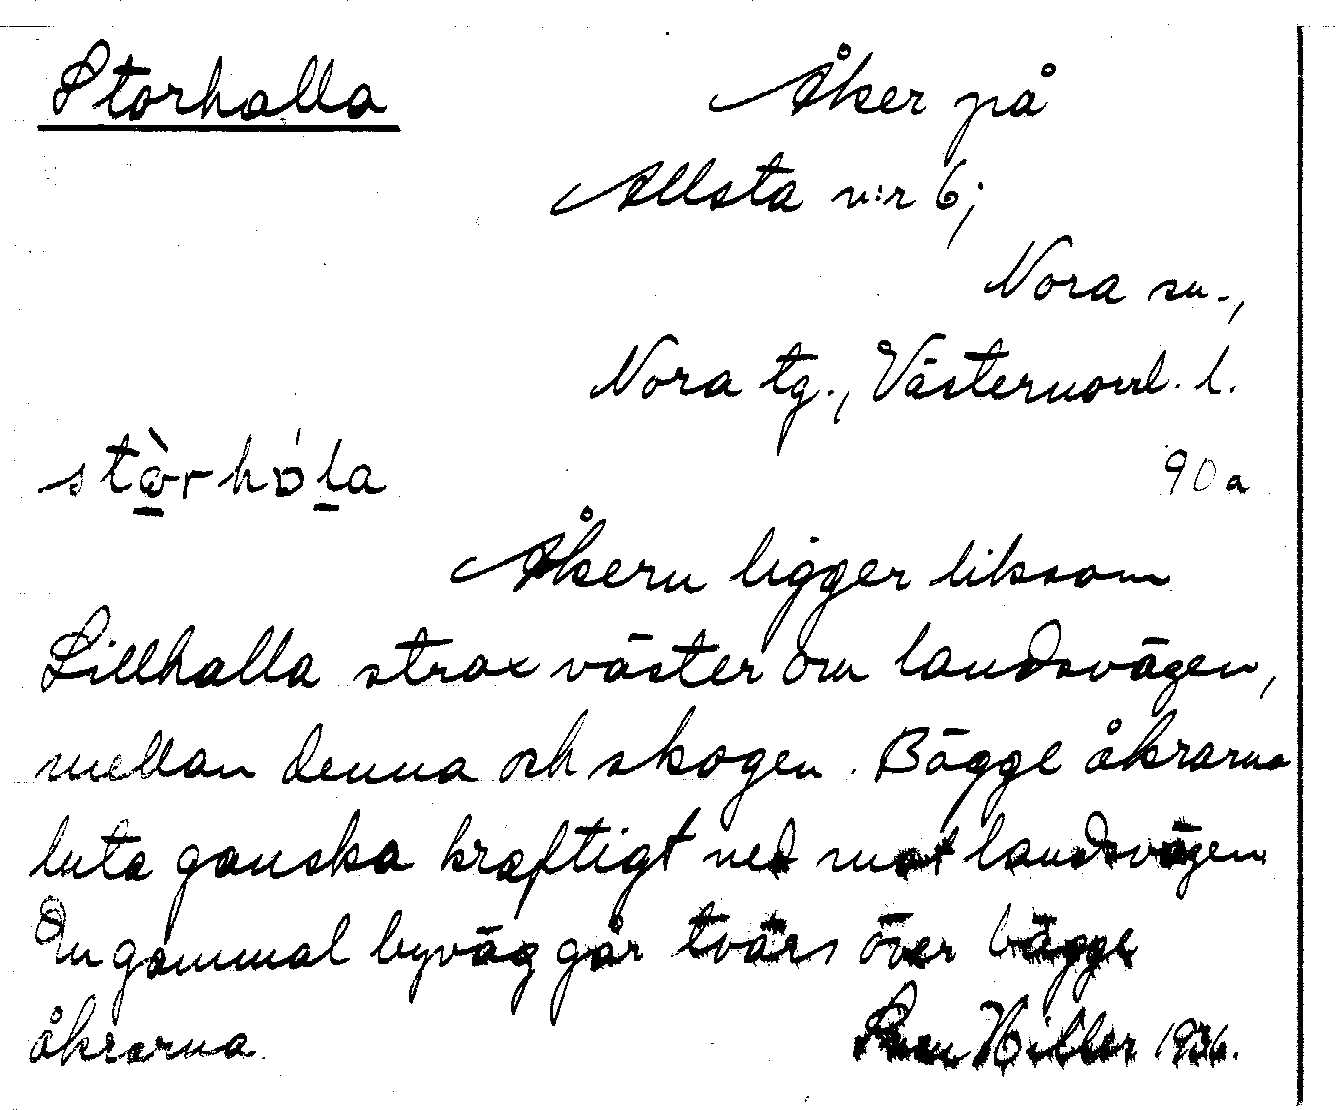 Storhalla
Åker på
Allsta n:r 6;
Nora sn.,
Nora tg., Västernorrl. l.
stòrhála
90 a
Åkern ligger liksom
Lillhalla strax väster om landsvägen,
mellan denna och skogen. Bägge åkrarna
luta ganska kraftigt ned mot landsvägen
En gammal byväg går tvärs över bägge
åkrarna.
Sven Hiller 1936.